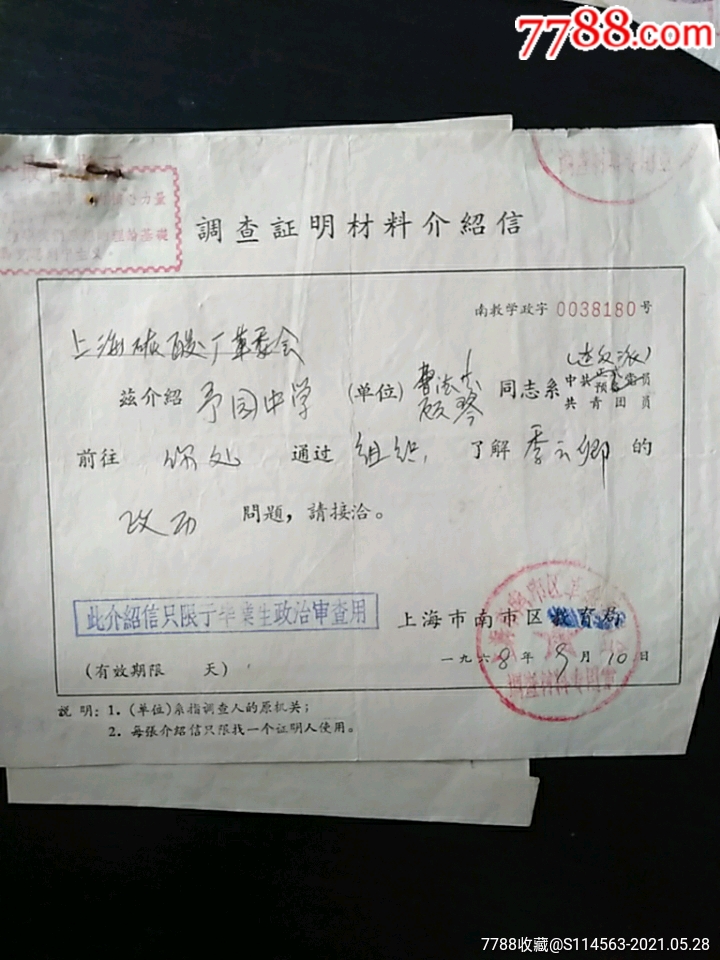 7788.com
調查証明材料介紹信
南教学政字 0038180 号
上海硫酸厂革委会
兹介紹 予园中学 (单位) 同志系
(造反派)
中共正式 预备党员
共青团員
前往 你处 通过 組織, 了解 季云卿 的
政历 問題，請接洽。
此介紹信只限于毕业生政治审查用
上海市南市区教育局
一九六8年9月10日
(有效期限 天)
說明：1.(单位)系指調查人的原机关；
2.每張介紹信只限找一个証明人使用。
7788收藏@S114563-2021.05.28